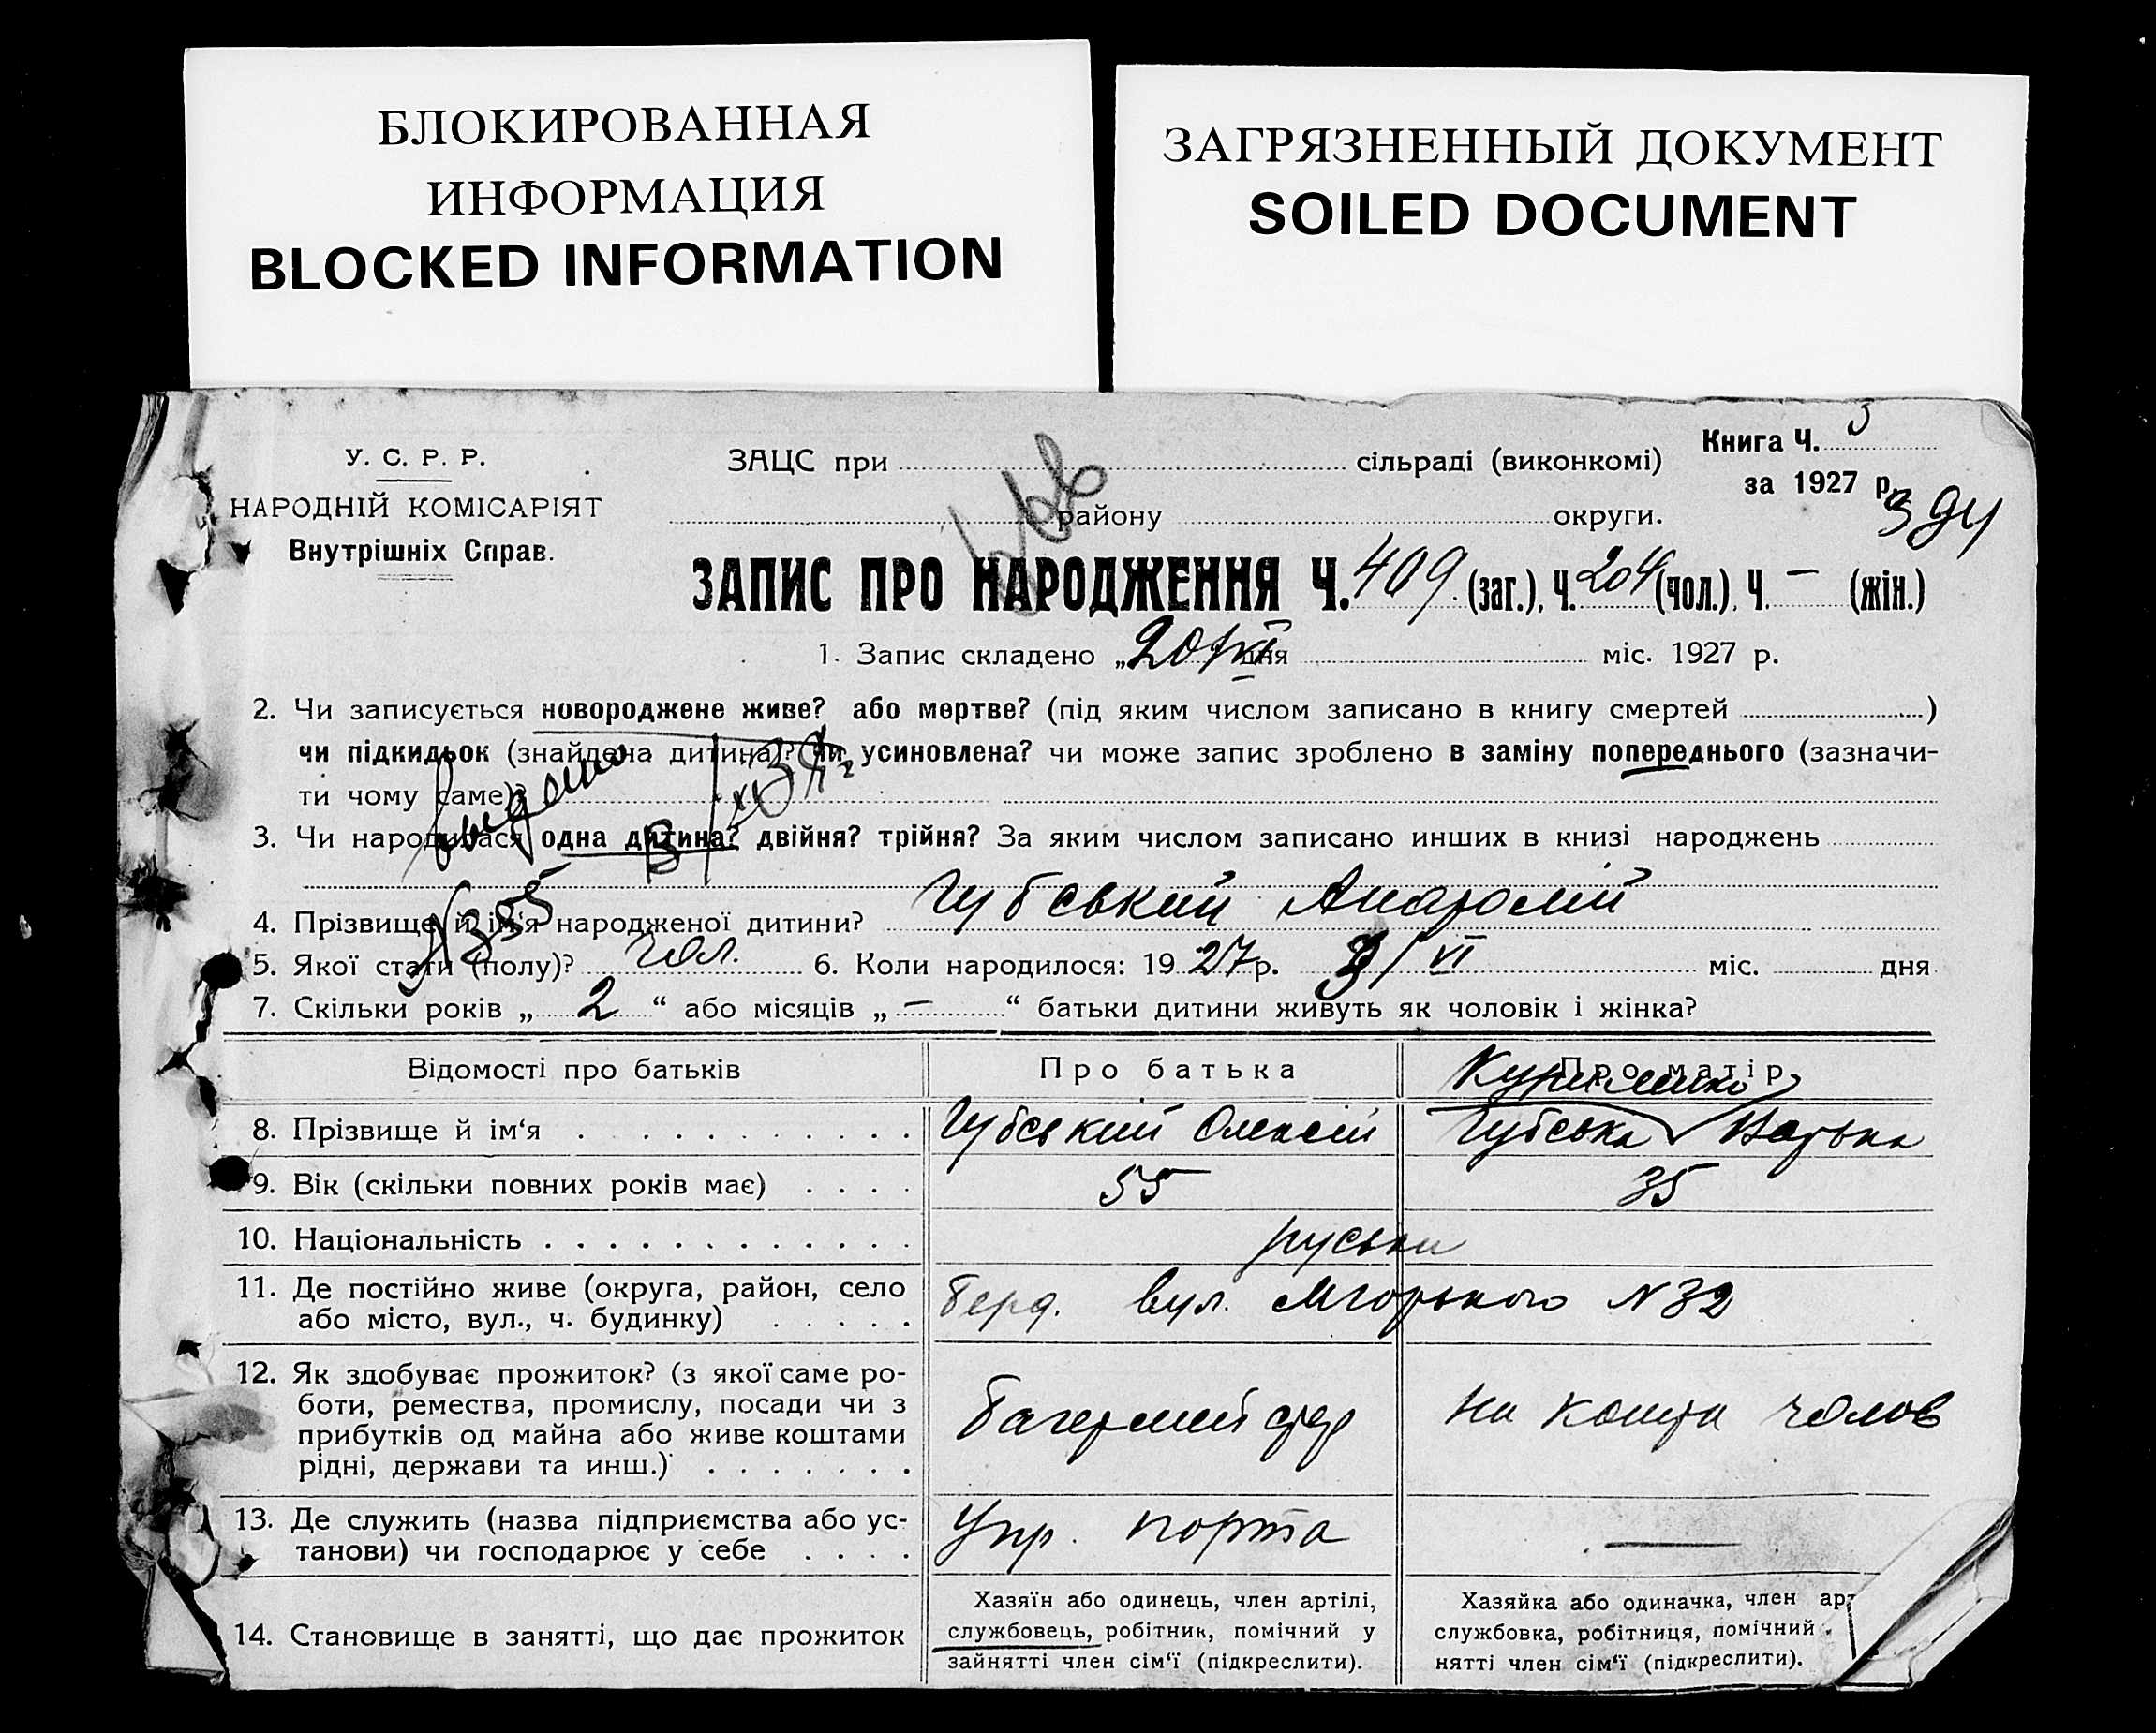 БЛОКИРОВАННАЯ
ИНФОРМАЦИЯ
BLOCKED INFORMATION
ЗАГРЯЗНЕННЫЙ ДОКУМЕНТ
SOILED DOCUMENT
У. С. Р. Р.
НАРОДНІЙ КОМІСАРІЯТ
Внутрішніх Справ.
Книга Ч. 3
за 1927 р.
394
ЗАЦС при сільраді (виконкомі)
району округи.
ЗАПИС ПРО НАРОДЖЕННЯ Ч. 409 (заг.), Ч. 204 (чол.), Ч. — (жін.)
1. Запис складено „20/VI дня міс. 1927 р.
2. Чи записується новороджене живе? або мертве? (під яким числом записано в книгу смертей )
чи підкидьок (знайдена дитина)? чи усиновлена? чи може запис зроблено в заміну попереднього (зазначи-
ти чому саме)?
3. Чи народилася одна дитина? двійня? трійня? За яким числом записано инших в книзі народжень
4. Прізвище й ім'я народженої дитини? Губський Анатолій
5. Якої стати (полу)? чол. 6. Коли народилося: 1927 р. 3/VI міс. дня
7. Скільки років „ 2 “ або місяців „ — “ батьки дитини живуть як чоловік і жінка?
Відомості про батьків Про батька Про матір
8. Прізвище й ім'я Губський Олексій Губська
9. Вік (скільки повних років має) 55 35
10. Національність руськи
11. Де постійно живе (округа, район, село Берд. вул. Мгорького N 32
або місто, вул., ч. будинку)
12. Як здобуває прожиток? (з якої саме ро-
боти, ремества, промислу, посади чи з на кошти чолов
прибутків од майна або живе коштами
рідні, держави та инш.)
13. Де служить (назва підприємства або ус- Упр. порта —
танови) чи господарює у себе
14. Становище в занятті, що дає прожиток
Хазяїн або одинець, член артілі,
службовець, робітник, помічний у
зайнятті член сім'ї (підкреслити).
Хазяйка або одиначка, член
службовка, робітниця, помічний
нятті член сім'ї (підкреслити).